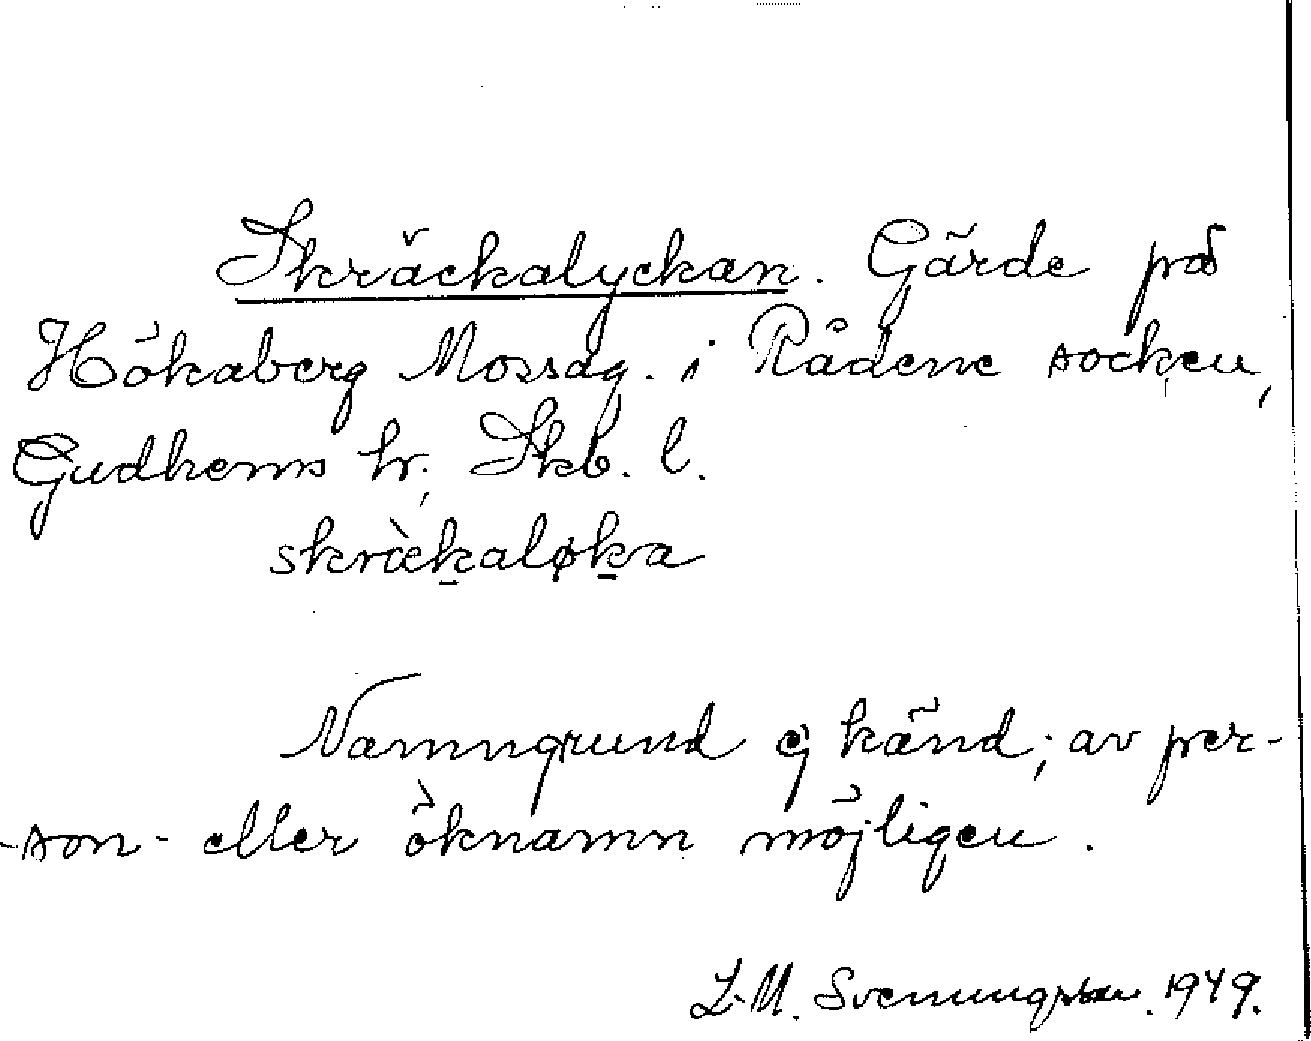 Skräckalyckan. Gärde på
Hökaberg Mossag. i Rådene socken,
Gudhems hr, Skb. l.
skrìekaløka
Namngrund ej känd; av per-
-son- eller öknamn möjligen.
L.M. Svenungsson. 1949.